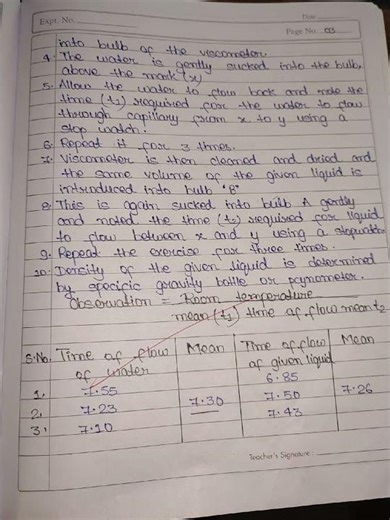 Expt. No.
Date
Page No. 03
into bulb of the viscometer.
4. The water is gently sucked into the bulb,
above the mark (x)
5. Allow the water to flow back and note the
time (t1) required for the water to flow
through capillary from x to y using a
stop watch.
6. Repeat it for 3 times.
7. Viscometer is then cleaned and dried and
the same volume of the given liquid is
introduced into bulb 'B'
8. This is again sucked into bulb A gently
and noted the time (t2) required for liquid
to flow between x and y using a stopwatch
9. Repeat the exercise for three times.
10. Density of the given liquid is determined
by specicic gravity bottle or pycnometer.
Observation = Room temperature
mean (t1) time of flow mean t2
S.No. Time of flow of water Mean Time of flow of given liquid Mean
1. 7.55 7.30 6.85 7.26
2. 7.23 7.50
3. 7.10 7.43
Teacher's Signature :